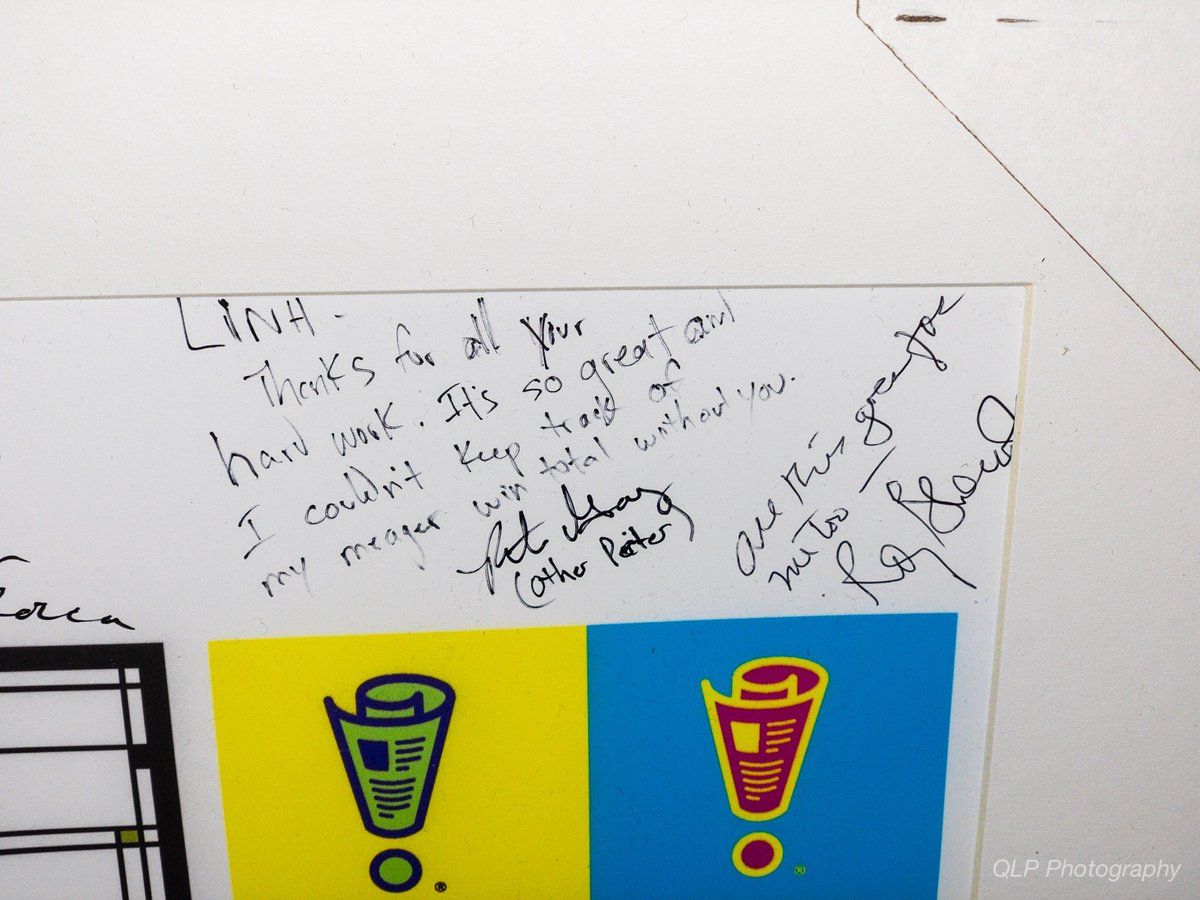 LINH -
Thanks for all your
hard work. It's so great and
I couldn't keep track of
my meager win total without you.
(other Peter)
are this
me too —
Roy
®
®
QLP Photography